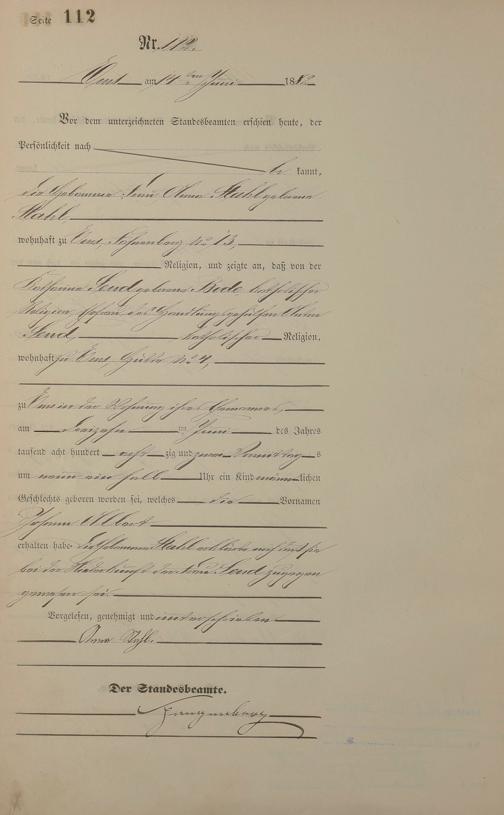 Seite 112
Nr. 112.
Ems am 14 ten Juni 1882
Vor dem unterzeichneten Standesbeamten erschien heute, der
Persönlichkeit nach
be kannt,
die Hebamme Frau Anna Stahl geborene
Stahl
wohnhaft zu Ems, No 13,
Religion, und zeigte an, daß von der
Katharina geborene Bode katholischer
Religion, Ehefrau des Handlungsgehilfen
katholischer Religion,
wohnhaft zu Ems, No 4,
zu Ems in der Wohnung ihres Ehemannes,
am dreizehn ten Juni des Jahres
tausend acht hundert acht zig und zwei s
um neun ein halb Uhr ein Kind männ lichen
Geschlechts geboren worden sei, welches die Vornamen
Johann Albert
erhalten habe. Die Hebamme Stahl erklärte noch daß sie
bei der Niederkunft der Frau zugegen
gewesen sei.
Vorgelesen, genehmigt und unterschrieben
Anna Stahl.
Der Standesbeamte.